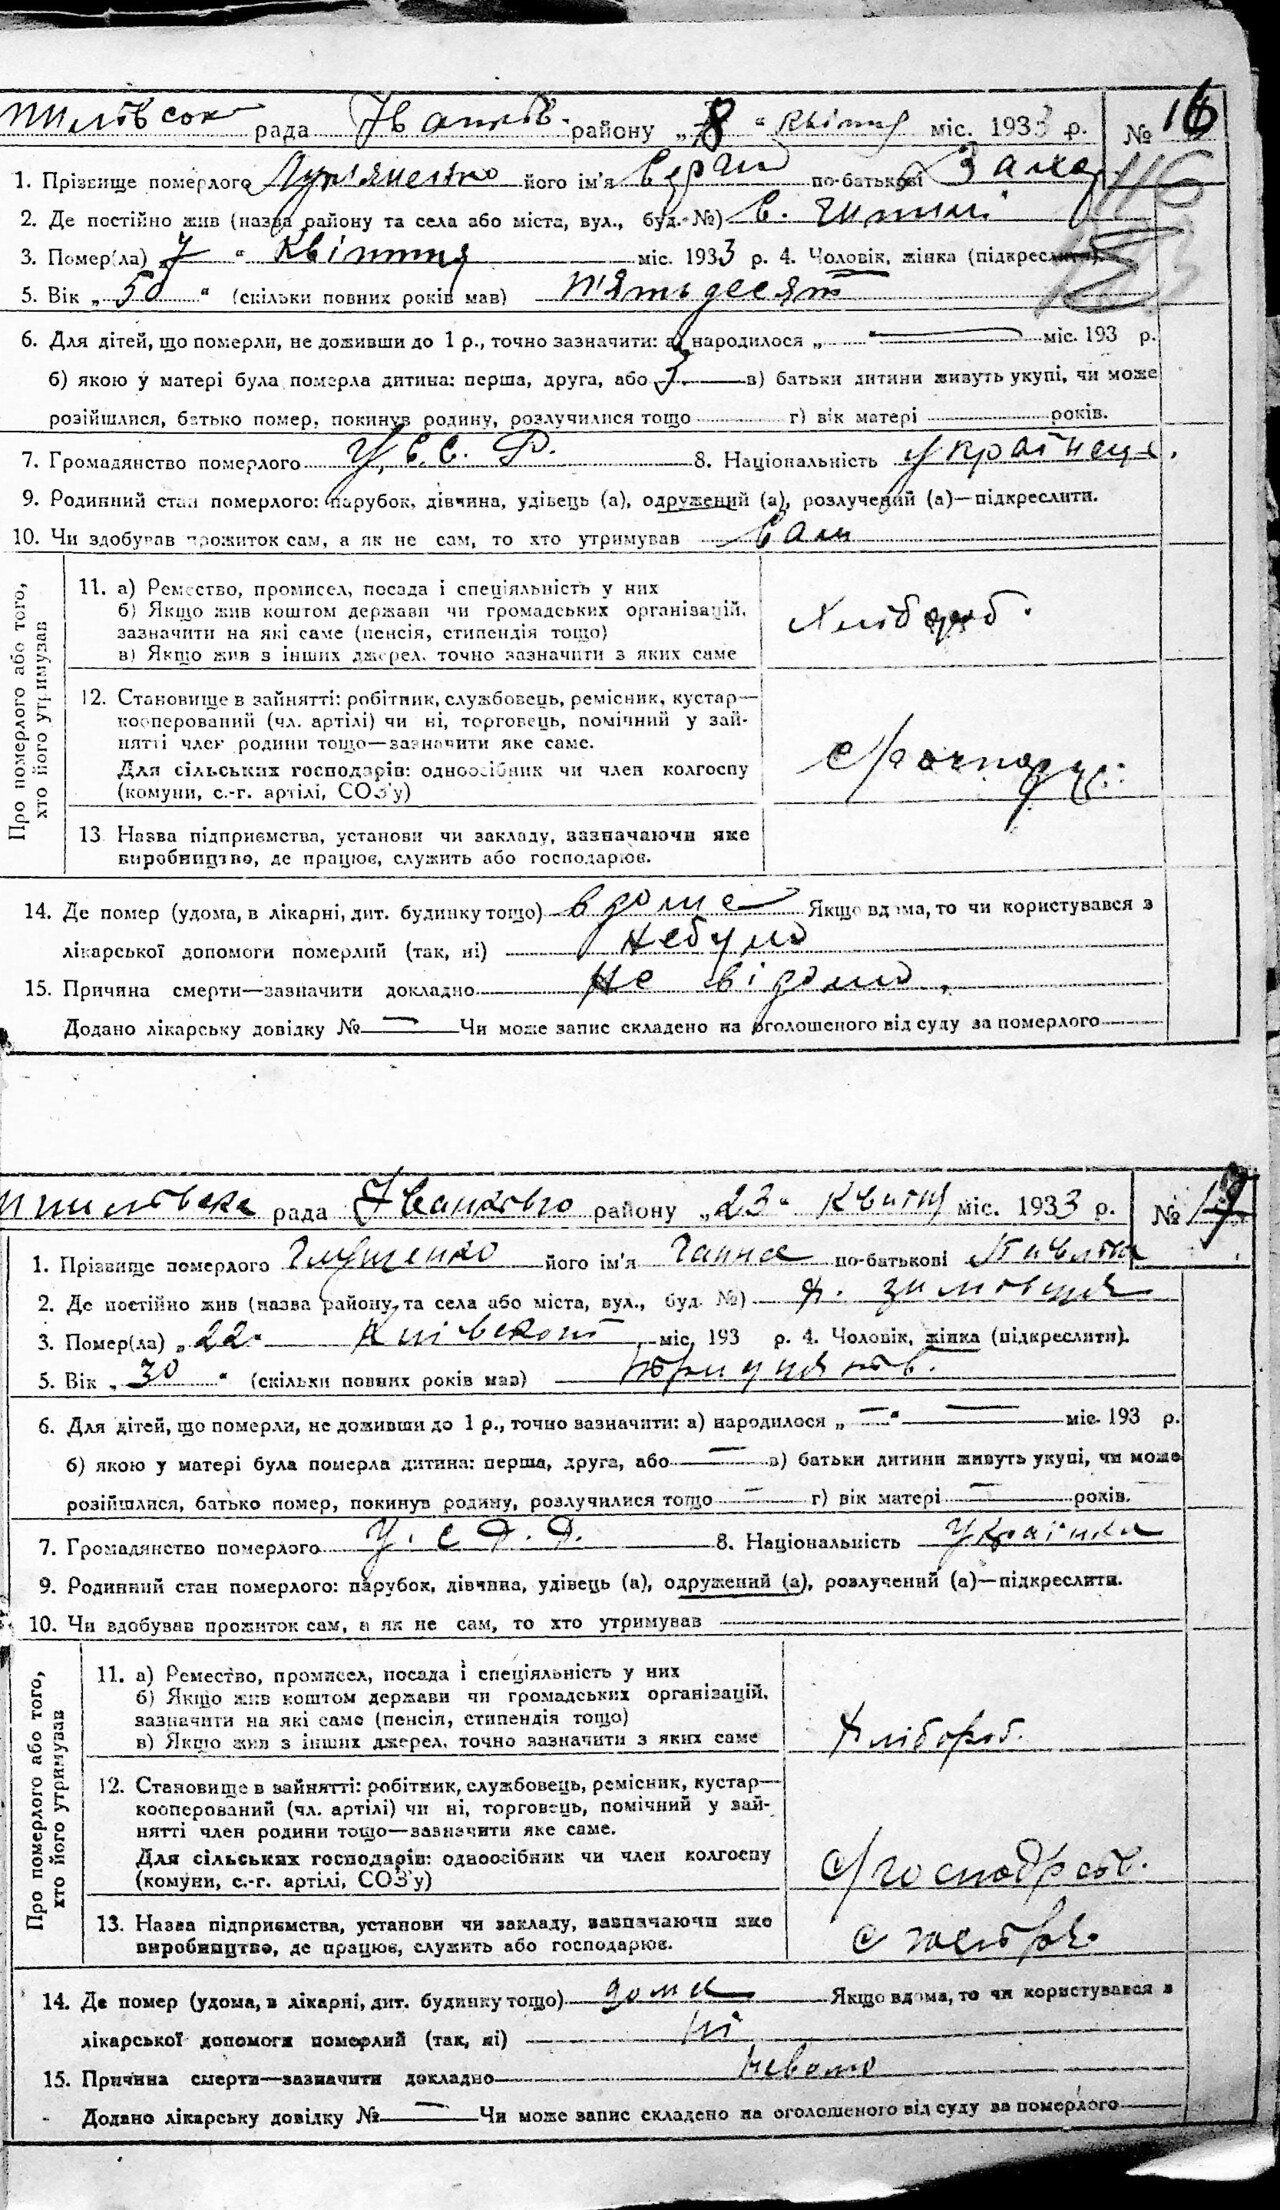 рада району „8“ Квітня міс. 1933 р. № 16
116
1. Прізвище померлого його ім'я по-батькові
2. Де постійно жив (назва району та села або міста, вул., буд. №) с.
3. Помер(ла) „7“ Квітня міс. 1933 р. 4. Чоловік, жінка (підкреслити).
5. Вік „50“ (скільки повних років мав) П'ятьдесят
6. Для дітей, що померли, не доживши до 1 р., точно зазначити: а) народилося „ — міс. 193 р.
б) якою у матері була померла дитина: перша, друга, або — в) батьки дитини живуть укупі, чи може
розійшлися, батько помер, покинув родину, розлучилися тощо г) вік матері років.
7. Громадянство померлого У.С.С.Р. 8. Національність українець.
9. Родинний стан померлого: парубок, дівчина, удівець (а), одружений (а), розлучений (а)—підкреслити.
10. Чи здобував прожиток сам, а як не сам, то хто утримував Сам
Про померлого або того, хто його утримував
11. а) Ремество, промисел, посада і спеціяльність у них
б) Якщо жив коштом держави чи громадських організацій,
зазначити на які саме (пенсія, стипендія тощо)
в) Якщо жив з інших джерел, точно зазначити з яких саме
Хлібороб.
12. Становище в зайнятті: робітник, службовець, ремісник, кустар—
кооперований (чл. артілі) чи ні, торговець, помічний у зай-
нятті член родини тощо—зазначити яке саме.
Для сільських господарів: одноосібник чи член колгоспу
(комуни, с.-г. артілі, СОЗ'у)
13 Назва підприємства, установи чи закладу, зазначаючи яке
виробництво, де працює, служить або господарює.
14. Де помер (удома, в лікарні, дит. будинку тощо) вдома Якщо вдома, то чи користувався з
лікарської допомоги померлий (так, ні) Небуло
15. Причина смерти—зазначити докладно Не відомо.
Додано лікарську довідку № — Чи може запис складено на оголошеного від суду за померлого
рада району „23“ Квітня міс. 1933 р. № 17
1. Прізвище померлого Глущенко його ім'я Ганна по-батькові
2. Де постійно жив (назва району, та села або міста, вул., буд. №)
3. Помер(ла) „22“ міс. 193 р. 4. Чоловік, жінка (підкреслити).
5. Вік „30“ (скільки повних років мав)
6. Для дітей, що померли, не доживши до 1 р., точно зазначити: а) народилося „—“ — міс. 193 р.
б) якою у матері була померла дитина: перша, друга, або — в) батьки дитини живуть укупі, чи може
розійшлися, батько помер, покинув родину, розлучилися тощо — г) вік матері — років.
7. Громадянство померлого 8. Національність Українка
9. Родинний стан померлого: парубок, дівчина, удівець (а), одружений (а), розлучений (а)—підкреслити.
10. Чи здобував прожиток сам, а як не сам, то хто утримував
Про померлого або того, хто його утримував
11. а) Ремество, промисел, посада і спеціяльність у них
б) Якщо жив коштом держави чи громадських організацій,
зазначити на які саме (пенсія, стипендія тощо)
в) Якщо жив з інших джерел, точно зазначити з яких саме
Хлібороб.
12. Становище в зайнятті: робітник, службовець, ремісник, кустар—
кооперований (чл. артілі) чи ні, торговець, помічний у зай-
нятті член родини тощо—зазначити яке саме.
Для сільських господарів: одноосібник чи член колгоспу
(комуни, с.-г. артілі, СОЗ'у)
13. Назва підприємства, установи чи закладу, зазначаючи яке
виробництво, де працює, служить або господарює.
14. Де помер (удома, в лікарні, дит. будинку тощо) дома Якщо вдома, то чи користувався з
лікарської допомоги померлий (так, ні) ні
15. Причина смерти—зазначити докладно
Додано лікарську довідку № — Чи може запис складено на оголошеного від суду за померлого